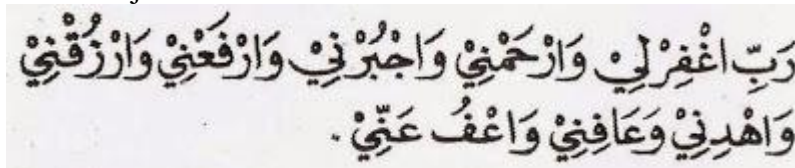 رَبِّ اغْفِرْ لِيْ وَارْحَمْنِيْ وَاجْبُرْنِيْ وَارْفَعْنِيْ وَارْزُقْنِيْ
وَاهْدِنِيْ وَعَافِنِيْ وَاعْفُ عَنِّيْ .